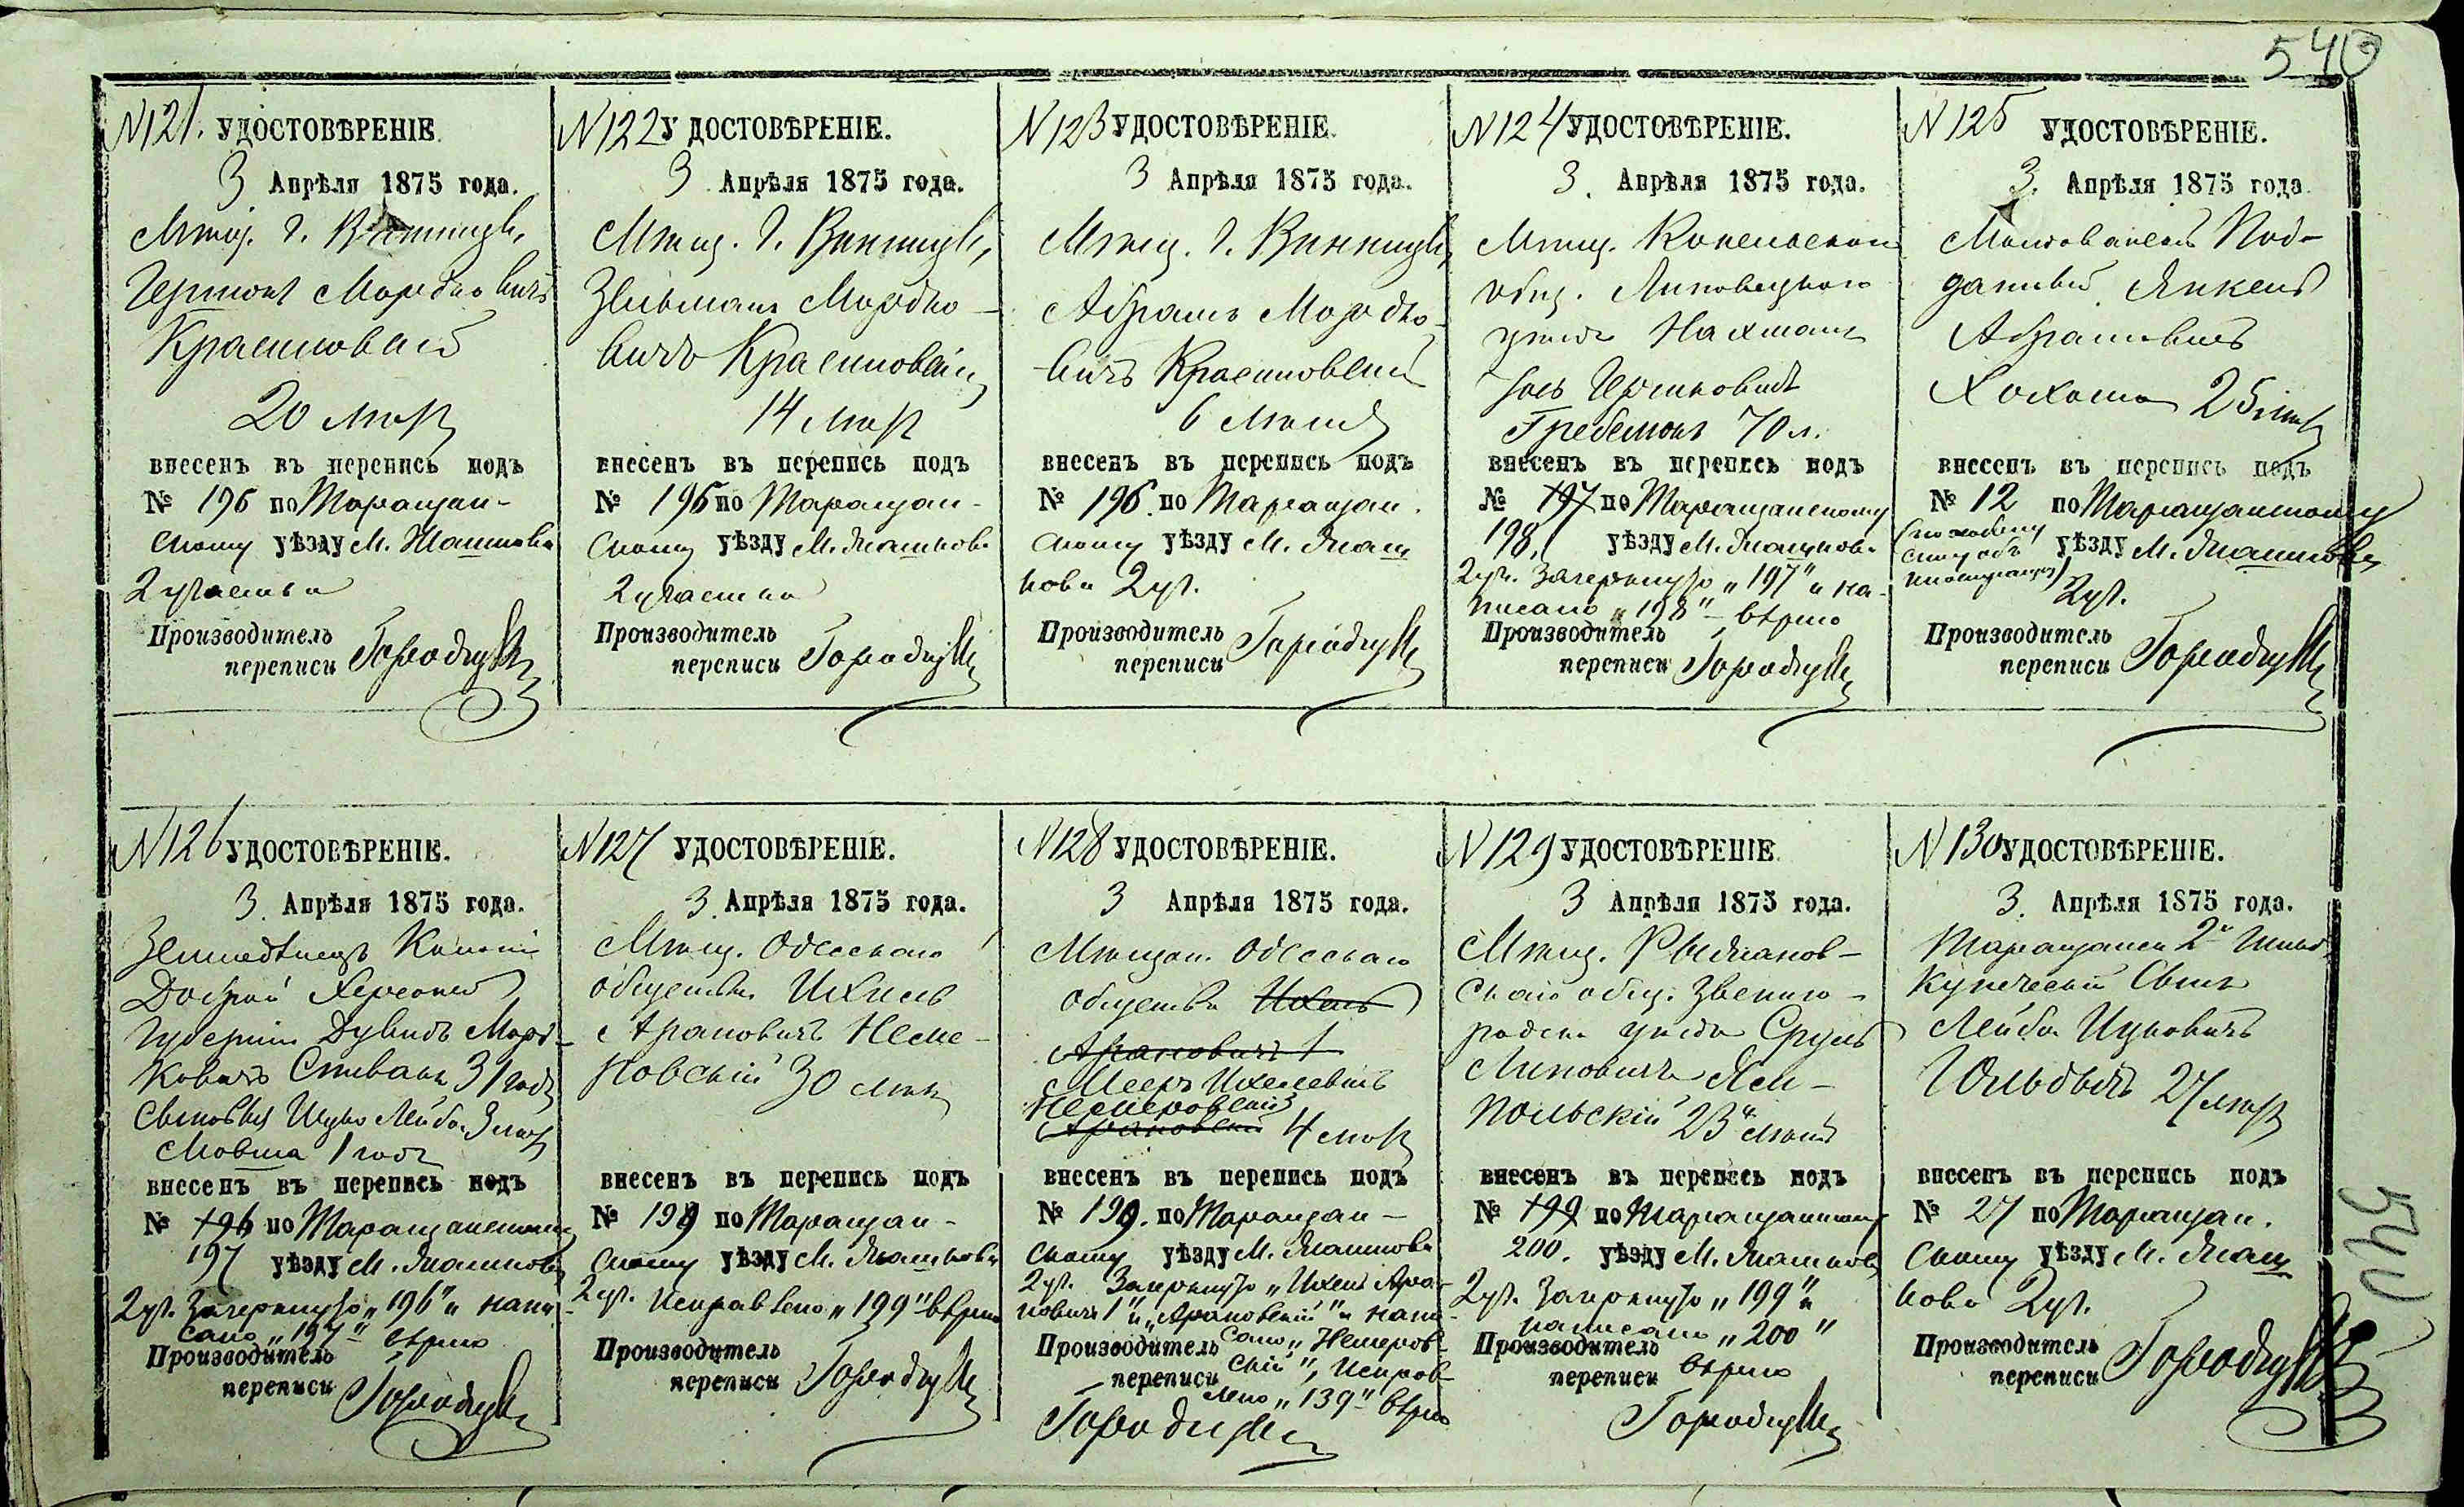 540
N 121. УДОСТОВѢРЕНІЕ.
3 Апрѣля 1875 года.
Мѣщ. г. Винницы,
Гершонъ Мордковичъ
Красновскій
20 лѣтъ
внесенъ въ перепись подъ
№ 196 по Таращан-
скому уѣзду М. Жашкова
2 участка
Производитель
переписи
N 122 УДОСТОВѢРЕНІЕ.
3 Апрѣля 1875 года.
Мѣщ. г. Винницы,
Зельманъ Мордко-
вичъ
14 лѣтъ
внесенъ въ перепись подъ
№ 196 по Таращан-
скому уѣзду М. Жашкова
2 участка
Производитель
переписи
N 123 УДОСТОВѢРЕНІЕ.
3 Апрѣля 1875 года.
Мѣщ. г. Винницы,
Абрамъ Мордко-
вичъ
6 лѣтъ
внесенъ въ перепись подъ
№ 196. по Таращан.
скому уѣзду М. Жаш
кова 2 уч.
Производитель
переписи
N 124 УДОСТОВѢРЕНІЕ.
3. Апрѣля 1875 года.
Мѣщ. Конельскаго
общ. Липовецкаго
уѣзда Нахманъ
Гершковичъ
70 л.
внесенъ въ перепись подъ
№ 197 по Таращанскому
198. уѣзду М. Жашкова
2 уч. Зачеркнуто „197" и на-
писано „198" – вѣрно
Производитель
переписи
N 125 УДОСТОВѢРЕНІЕ.
3. Апрѣля 1875 года.
Под-
данный Янкель
Абрамовичъ
25 лѣтъ
внесенъ въ перепись подъ
№ 12 по Таращанскому
уѣзду М. Жашкова
2 уч.
Производитель
переписи
N 126 УДОСТОВѢРЕНІЕ.
3. Апрѣля 1875 года.
Земледѣлецъ Колоніи
Доброй Херсонской
Губерніи Дувидъ Морд-
ковичъ Спивакъ 31 годъ
Сыновья Ицко Лейба 3 лѣтъ
Мовша 1 годъ
внесенъ въ перепись подъ
№ 196 по Таращанскому
197 уѣзду М. Жашкова
2 уч. Зачеркнуто „196" и напи-
сано „197" вѣрно
Производитель
переписи
N 127 УДОСТОВѢРЕНІЕ.
3. Апрѣля 1875 года.
Мѣщ. Одесскаго
общества Ихиль
Ароновичъ
30 лѣтъ
внесенъ въ перепись подъ
№ 199 по Таращан-
скому уѣзду М. Жашкова
2 уч. Исправлено „199" вѣрно
Производитель
переписи
N 128 УДОСТОВѢРЕНІЕ.
3 Апрѣля 1875 года.
Мѣщан. Одесскаго
общества Ихель
Ароновичъ 1
Мееръ Ихелевичъ
4 лѣтъ
внесенъ въ перепись подъ
№ 199. по Таращан-
скому уѣзду М. Жашкова
2 уч. Зачеркнуто „Ихель Аро-
новичъ 1" и „Ароновскій" и напи-
Производитель
переписи
лено „139" вѣрно
N 129 УДОСТОВѢРЕНІЕ.
3 Апрѣля 1875 года.
Мѣщ. Рыжанов-
скаго общ. Звениго-
родск. уѣзда Сруль
Липовичъ Ям-
польскій 23 лѣтъ
внесенъ въ перепись подъ
№ 199 по Таращанскому
200. уѣзду М. Жашкова
2 уч. Зачеркнуто „199" и
написано „200"
Производитель
переписи вѣрно
N 130 УДОСТОВѢРЕНІЕ.
3. Апрѣля 1875 года.
Таращанск. 2й Гильд.
Купеческій Сынъ
Лейба Ицковичъ
27 лѣтъ
внесенъ въ перепись подъ
№ 27 по Таращан.
скому уѣзду М. Жаш
кова 2 уч.
Производитель
переписи
540